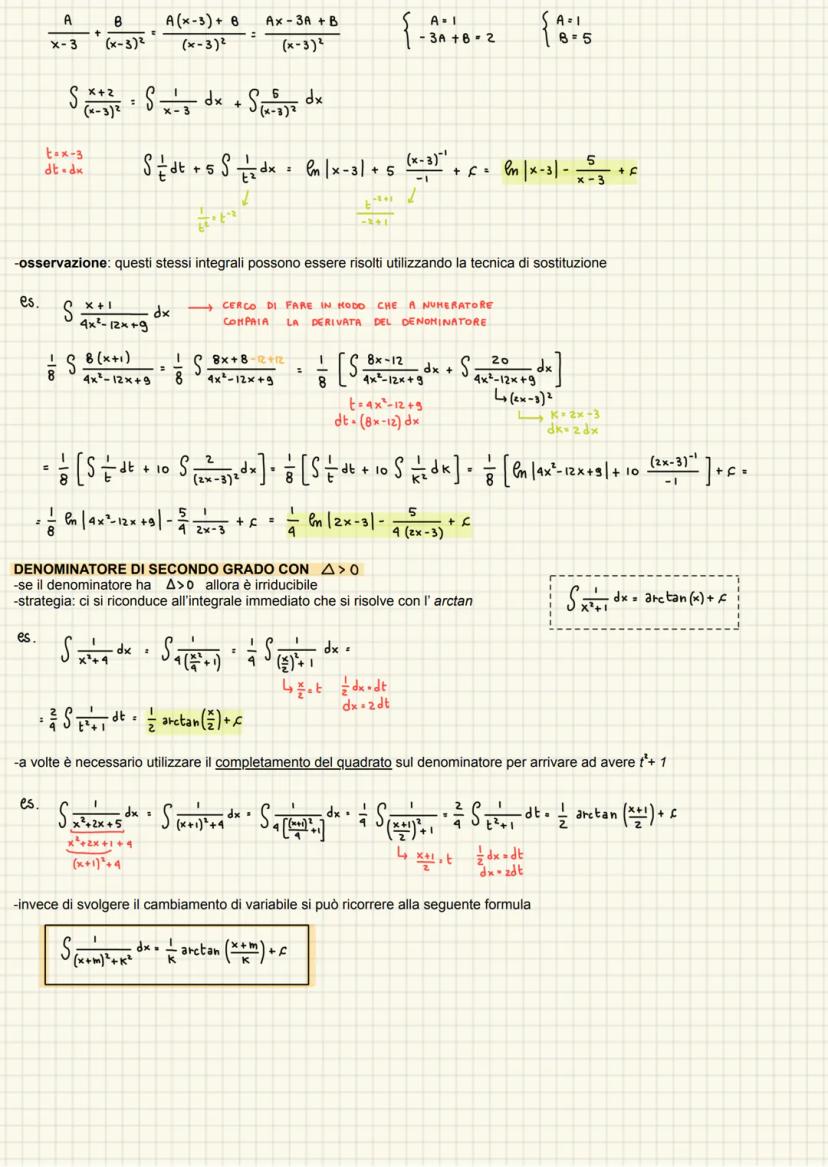 A/(x-3) + B/(x-3)² = (A(x-3) + B)/(x-3)² = (Ax - 3A + B)/(x-3)²   { A = 1   { A = 1
{ -3A + B = 2   { B = 5
∫ (x+2)/(x-3)² = ∫ 1/(x-3) dx + ∫ 5/(x-3)² dx
t = x-3
dt = dx
∫ 1/t dt + 5 ∫ 1/t² dx = ln|x-3| + 5 (x-3)⁻¹/-1 + c = ln|x-3| - 5/(x-3) + c
1/t² = t⁻²   t⁻²⁺¹/(-2+1)
-osservazione: questi stessi integrali possono essere risolti utilizzando la tecnica di sostituzione
es. ∫ (x+1)/(4x²-12x+9) dx → CERCO DI FARE IN MODO CHE A NUMERATORE
COMPAIA LA DERIVATA DEL DENOMINATORE
1/8 ∫ 8(x+1)/(4x²-12x+9) = 1/8 ∫ (8x+8-12+12)/(4x²-12x+9) = 1/8 [∫ (8x-12)/(4x²-12x+9) dx + ∫ 20/(4x²-12x+9) dx]
↳ (2x-3)²
t = 4x²-12+9   ↳ K = 2x-3
dt = (8x-12) dx   dK = 2 dx
= 1/8 [∫ 1/t dt + 10 ∫ 2/(2x-3)² dx] = 1/8 [∫ 1/t dt + 10 ∫ 1/K² dK] = 1/8 [ln|4x²-12x+9| + 10 (2x-3)⁻¹/-1] + c =
= 1/8 ln|4x²-12x+9| - 5/4 1/(2x-3) + c = 1/4 ln|2x-3| - 5/(4(2x-3)) + c
DENOMINATORE DI SECONDO GRADO CON Δ>0
-se il denominatore ha Δ>0 allora è irriducibile
-strategia: ci si riconduce all'integrale immediato che si risolve con l' arctan
∫ 1/(x²+1) dx = arctan(x) + c
es. ∫ 1/(x²+4) dx = ∫ 1/(4(x²/4 + 1)) = 1/4 ∫ 1/((x/2)² + 1) dx =
↳ x/2 = t   1/2 dx = dt
dx = 2dt
= 2/4 ∫ 1/(t²+1) dt = 1/2 arctan(x/2) + c
-a volte è necessario utilizzare il completamento del quadrato sul denominatore per arrivare ad avere t²+ 1
es. ∫ 1/(x²+2x+5) dx = ∫ 1/((x+1)²+4) dx = ∫ 1/(4[(x+1)²/4 + 1]) dx = 1/4 ∫ 1/(((x+1)/2)² + 1) = 2/4 ∫ 1/(t²+1) dt = 1/2 arctan((x+1)/2) + c
x²+2x+1+4
(x+1)²+4
↳ (x+1)/2 = t   1/2 dx = dt
dx = 2dt
-invece di svolgere il cambiamento di variabile si può ricorrere alla seguente formula
∫ 1/((x+m)²+K²) dx = 1/K arctan((x+m)/K) + c